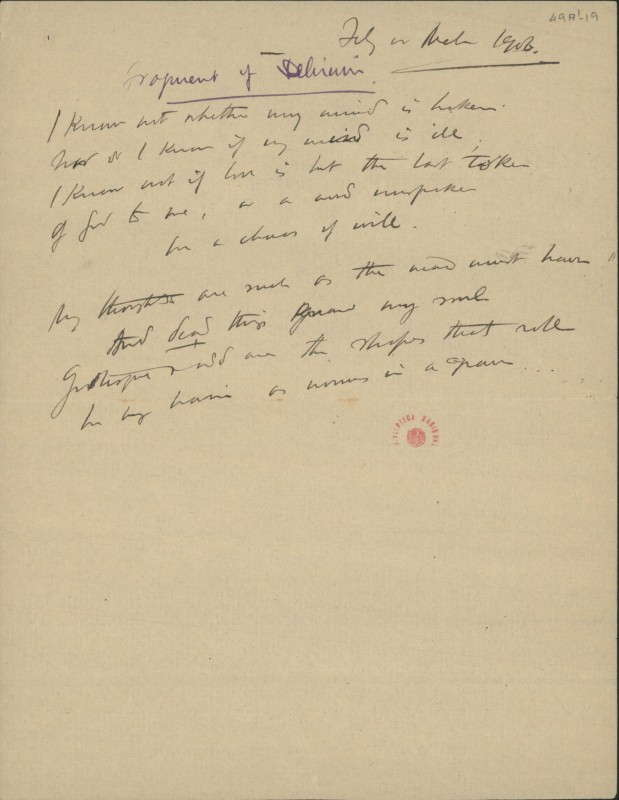 49A¹-19
Feb or Mch 1906.
Fragment of Delirium.
I know not whether my mind is broken.
Nor do I know if my mind is ill,
I know not if love is but the last token
Of God to me, or a word unspoken
In a chaos of will.
My thoughts are such as the mad must have
And dead things my soul
Grotesque and odd are the shapes that roll
In my brain as worms in a grave...
BIBLIOTECA NACIONAL